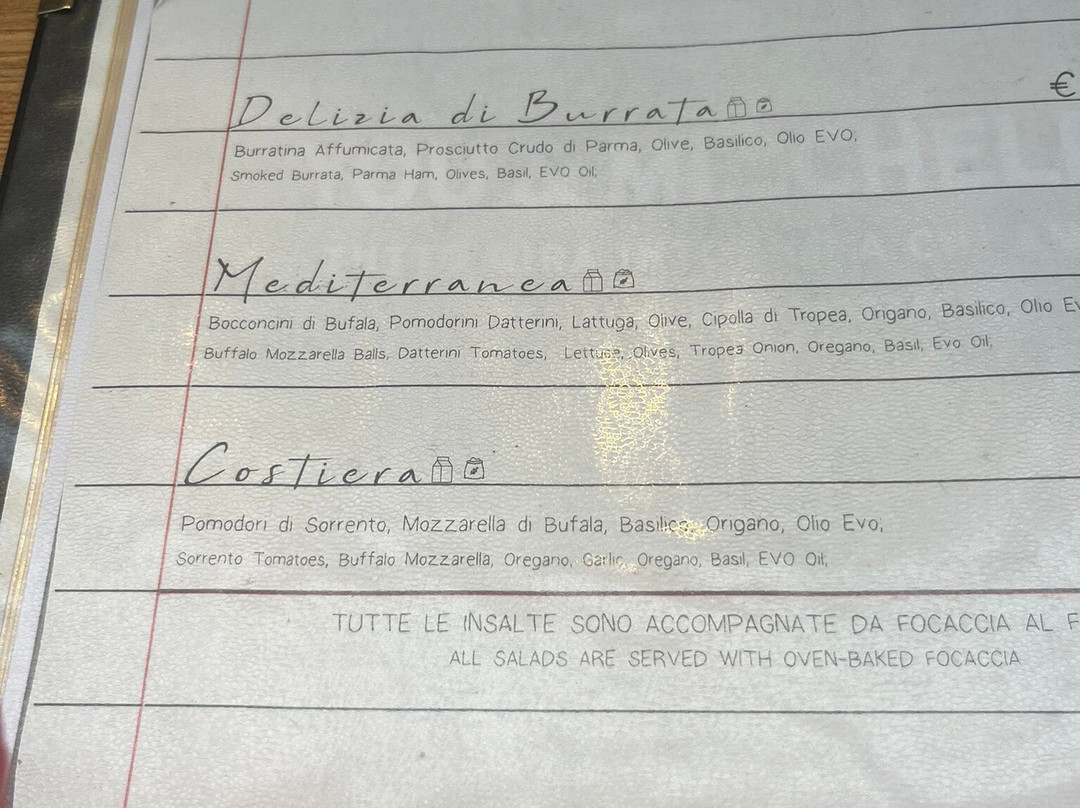 Delizia di Burrata €
Burratina Affumicata, Prosciutto Crudo di Parma, Olive, Basilico, Olio EVO;
Smoked Burrata, Parma Ham, Olives, Basil, EVO Oil;
Mediterranea
Bocconcini di Bufala, Pomodorini Datterini, Lattuga, Olive, Cipolla di Tropea, Origano, Basilico, Olio
Buffalo Mozzarella Balls, Datterini Tomatoes, Lettuce, Olives, Tropea Onion, Oregano, Basil, Evo Oil;
Costiera
Pomodori di Sorrento, Mozzarella di Bufala, Basilico, Origano, Olio Evo;
Sorrento Tomatoes, Buffalo Mozzarella, Oregano, Garlic, Oregano, Basil, EVO Oil;
TUTTE LE INSALTE SONO ACCOMPAGNATE DA FOCACCIA AL
ALL SALADS ARE SERVED WITH OVEN-BAKED FOCACCIA